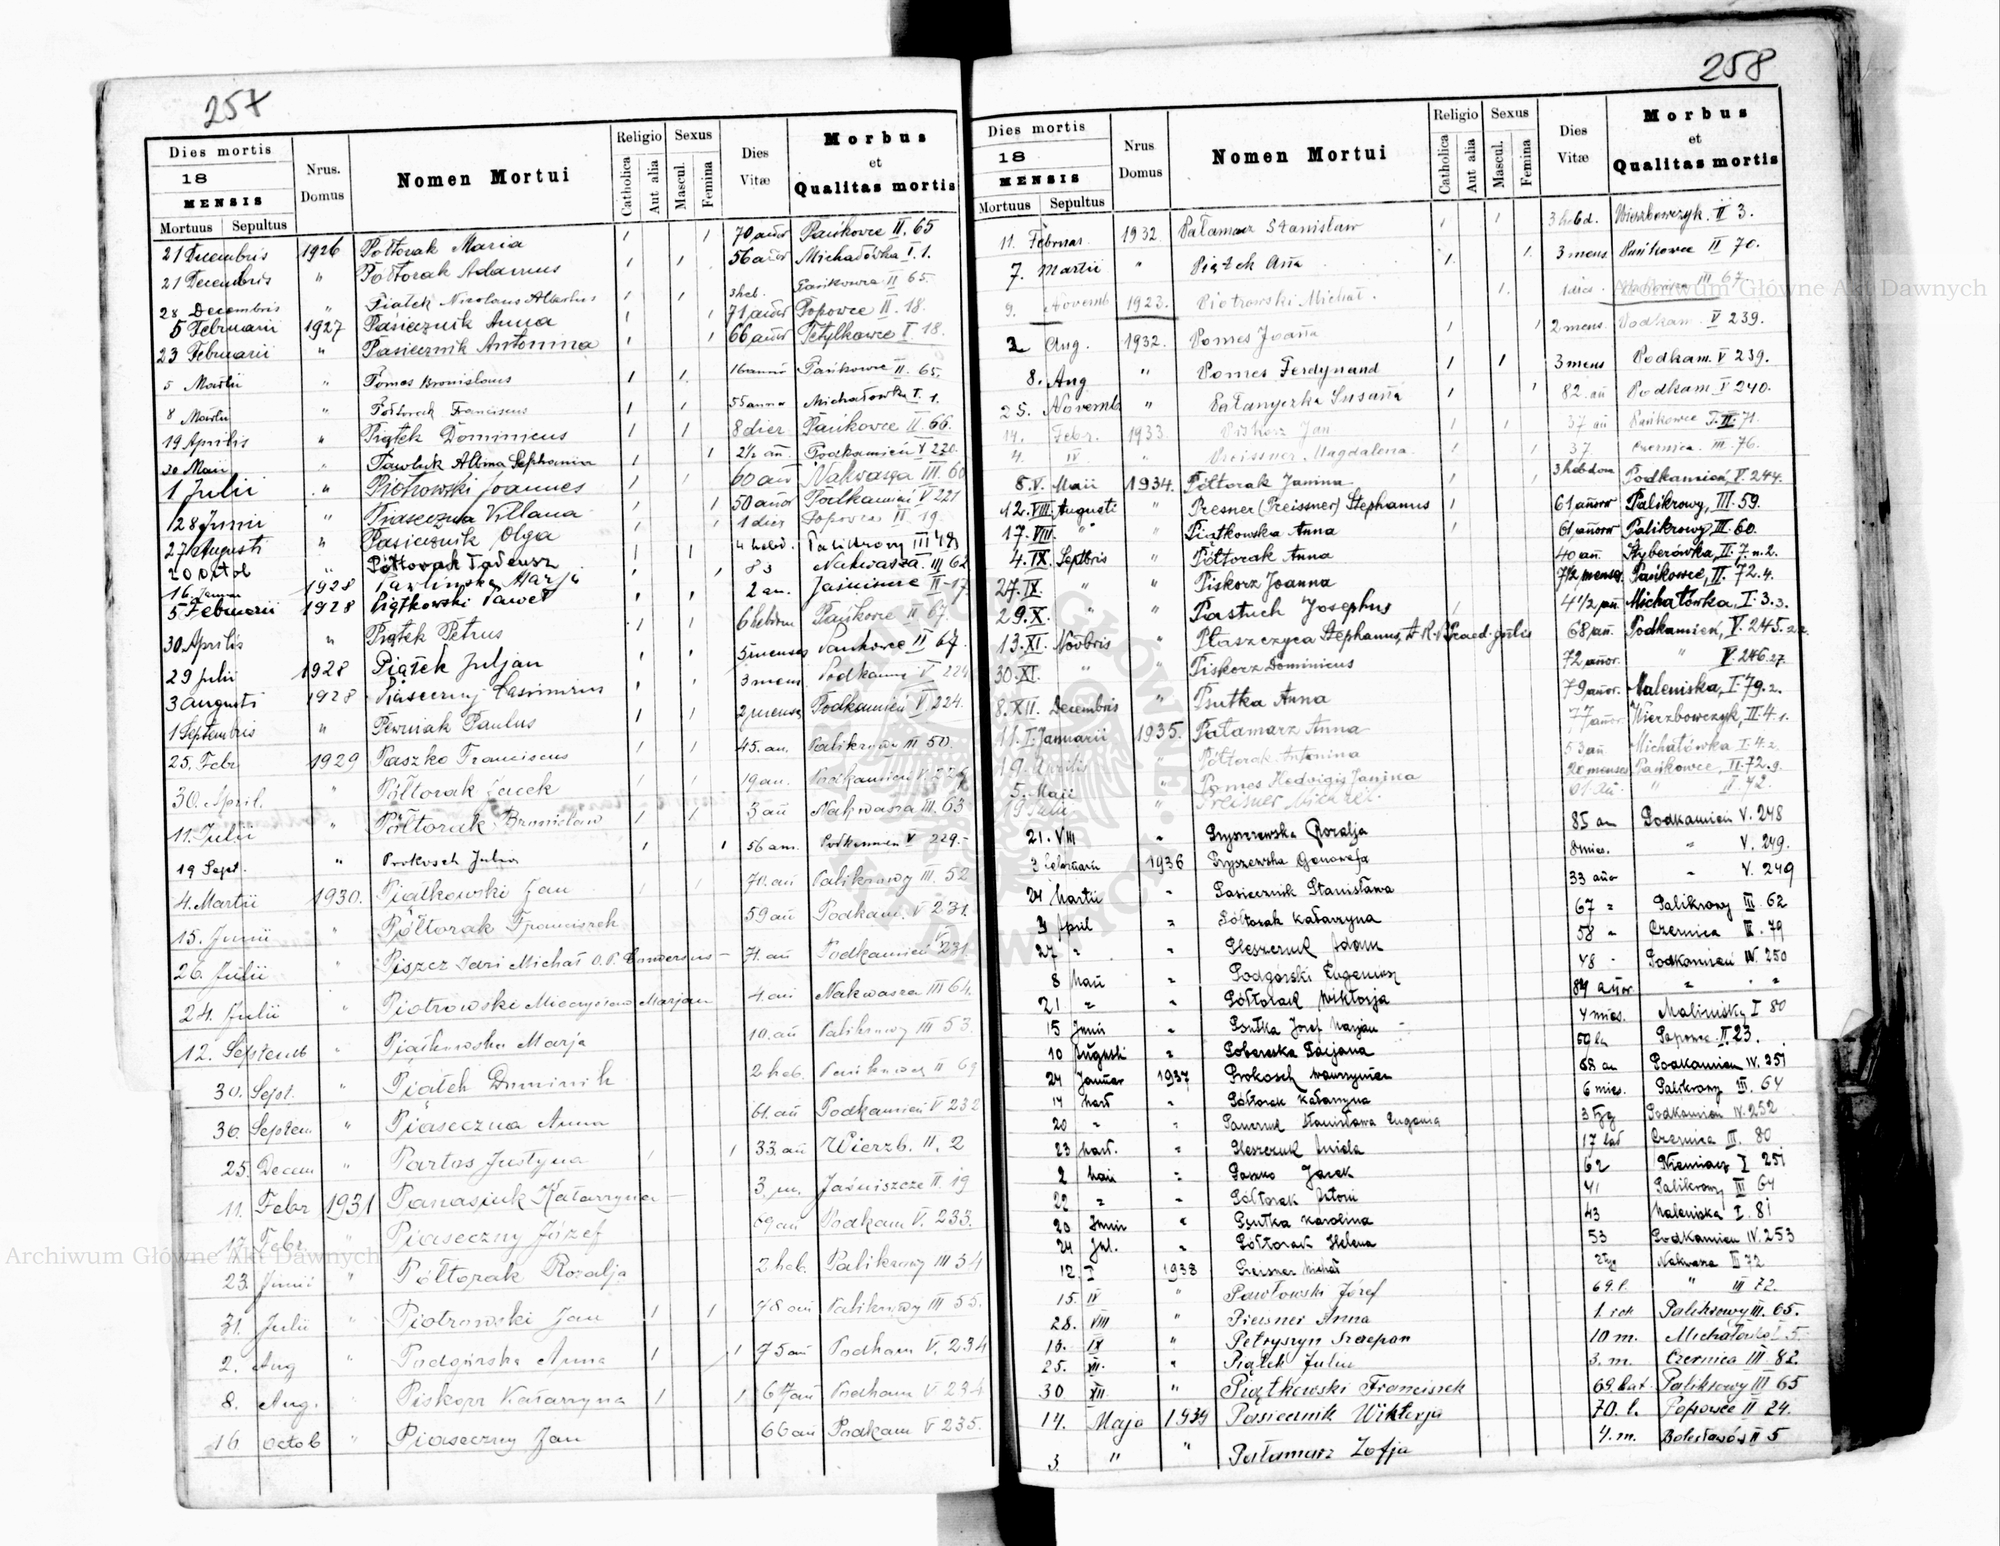 257
Dies mortis
18
MENSIS
Mortuus Sepultus
Nrus. Domus
Nomen Mortui
Religio
Catholica
Aut alia
Sexus
Mascul.
Femina
Dies Vitæ
Morbus
et
Qualitas mortis
21 Decembris 1926 Półtorak Maria 70 añor Pańkowce II. 65
21 Decembris " Półtorak Adamus 56 añor Michałówka I. 1.
28 Decembris " Piątek Nicolaus Albertus 3 heb. Pańkowce II 65.
5 Februarii 1927 Pasiecznik Anna 71 añor Popowce II. 18.
23 Februarii " Pasiecznik Antonina 66 añor I. 18.
5 Martii " Pomes Bronislaus Pańkowce II. 65.
8 Martii " Półtorak Franciscus 55 annor Michałówka I. 1.
19 Aprilis " Piątek Dominicus 8 dier Pańkowce II. 66.
20 Maii " Pawluk Albina Stephania 2 1/2 añ. Podkamień V 220.
1 Julii " Piotrowski Joannes 60 añ Nakwasza III. 60
28 Junii " Piaseczna 50 añor Podkamień V 221
27 Augusti " Pasiecznik Olga 1 dier Popowce II 19.
20 Octob " Półtorak Tadeusz 4 hebd. Palikrowy III 48
16 1928 Marja Nakwasza III 62
5 Februarii 1928 Piątkowski Paweł 2 an. Jaśniszcze II - 17
30 Aprilis " Piątek Petrus 6 hebdom Pańkowce II 67.
29 Julii 1928 Piątek Juljan 5 menses Pańkowce II 67.
3 Augusti 1928 Piaseczny Casimirus 3 mens Podkamień V 224
1 Septembris " Pewniak Paulus 2 menses Podkamień V 224.
25. Febr 1929 Paszko Franciscus 45. an. Palikrowy III 50.
30. April. " Półtorak Jacek 19 an. Podkamień V.
11. Julii " Półtorak Bronisław 3 añ Nakwasza III. 63
19 Sept. " Prokosch Julia 56 ann. Podkamień V 229.-
4. Martii 1930. Piątkowski Jan 70. añ Palikrowy III. 52
15. Junii " Półtorak Franciszek 59 añ Podkam. V 231.
26. Julii " Piszcz Michał O. P. Conversus - 71. añ Podkamień V 231
24. Julii " Piotrowski Mieczysław Marjan 4. añ Nakwasza III 64.
12. Septemb " Piątkowska Marja 10. añ Palikrowy III 53.
30. Sept. " Piątek Dominik 2 heb. Pańkowce II 69
30. Septem " Piaseczna Anna 61. añ Podkamień V 232
25. Decem " Partas Justyna 33. añ Wierzb. II. 2
11. Febr 1931 Panasiuk Katarzyna - 3. m. Jaśniszcze II. 19
17. Febr. " Piaseczny Józef 69 añ Podkam V. 233.
23. Junii " Półtorak Rozalja 2 heb. Palikrowy III 54
31. Julii " Piotrowski Jan 78 añ Palikrowy III 55.
2. Aug " Podgórska Anna 75 añ Podkam V. 234
8. Aug. " Piskorz Katarzyna 67 añ Podkam V 234
16 Octob " Piaseczny Jan 66 añ Podkam V 235.
258
Dies mortis
18
MENSIS
Mortuus Sepultus
Nrus Domus
Nomen Mortui
Religio
Catholica
Aut alia
Sexus
Mascul.
Femina
Dies Vitæ
Morbus
et
Qualitas mortis
11. Februar. 1932. Pałamarz Stanisław 3 hebd. Wierzbowczyk. II 3.
7. Martii " Piątek Aña 3 mens Pańkowce II 70.
9. Novemb 1923. Piotrowski Michał. 1 dies III 67.
2 Aug. 1932. Pomes Joaña 2 mens. Podkam. V 239.
8. Aug " Pomes Ferdynand 3 mens Podkam. V 239.
25. Novemb " Pałanyczka Susaña 82. añ Podkam. V 240.
14. Febr. 1933. Piskorz Jan 37 añ Pańkowce II. 71.
4. IV " Preissner Magdalena. 37. Czernica. III. 76.
8. V. Maii 1934. Półtorak Janina 3 hebdom Podkamień, V. 244.
12. VIII. Augusti " Presner (Preissner) Stephanus 61 añorum Palikrowy, III. 59.
17. VIII. " " Piątkowska Anna 61 añorum Palikrowy III. 60.
4. IX. Septbris " Półtorak Anna 40 añ. Styberówka, II. 7. n. 2.
27. IX. " Piskorz Joanna 7 1/2 menses Pańkowce, II. 72. 4.
29. X. " " Pastuch Josephus 4 1/2 añ. Michałówka, I. 3. 3.
13. XI. Novbris " Płaszczyca Stephanus, 68 añ. Podkamień, V. 245.
30. XI. " " Piskorz Dominicus 72 añor. " V. 246. 27.
8. XII. Decembris " Psutka Anna 79 añor. Maleniska, I. 79. 2.
11. I. Januarii 1935. Pałamarz Anna 77 añor. Wierzbowczyk, II. 4. 1.
19. Aprilis " Półtorak Antonina 53 añ Michałówka I. 4. 2.
5. Maji " Pomes Hedvigis Janina menses Pańkowce, II. 72. 9.
19 Julii " Preisner Michael. 61. añ. " II. 72.
21. VIII " Pryszczewska Rozalja 85 an Podkamień V. 248
3 Februarii 1936 Pryszewska Genowefa 8 mies. " V. 249.
24 Martii " Pasiecznik Stanisława 33 añor " V. 249
3 April " Półtorak Katarzyna 67 " Palikrowy III. 62
27 " " Pleszczuk Adam 58 " Czernica III. 79
8 Maii " Podgórski Eugeniusz 48 - Podkamień IV. 250
21 " " Półtorak Wiktorja 84 añor. " " "
15 Junii " Psutka Józef Marjan - 4 mies. Maliniska I 80
10 Augusti " Soberska Pacjana 69 la Popowce II 23.
24 Januar 1937 Prokosch Wawrzyniec 68 an Podkamień IV. 251
17 Mart " Półtorak Katarzyna 6 mies. Palikrowy III. 64
20 " " Stanisława Eugenia 3 tyg Podkamień IV. 252
23 Mart. " Pleszczuk Aniela 17 lat Czernica III. 80
2 Maii " Jacek 62 I 251
22 " " Półtorak Antoni 41 Palikrowy III 64
20 Junii " Psutka Karolina 43 Maleniska I. 81
24 Jul. " Półtorak Helena 53 Podkamień IV. 253
12. I 1938 Preisner Michał 2 tyg Nakwasza III 72
15. IV " Pawłowski Józef 69. l. " III 72.
28. VIII " Piersner Anna 1. rok Palikrowy III. 65.
16. IX " Petryszyn Szczepan 10 m. Michałówka I 5.
25. XII. " Piątek Julia 3. m. Czernica III 82.
30 XII. " Piątkowski Franciszek 69. lat. Palikrowy III 65
14. Maja 1939 Pasiecznik Wiktorja 70. l. Popowce II 24.
3. " " Pałamarz Zofja 4. m. Bolesławów II 5
Archiwum Główne Akt Dawnych
Archiwum Główne Akt Dawnych